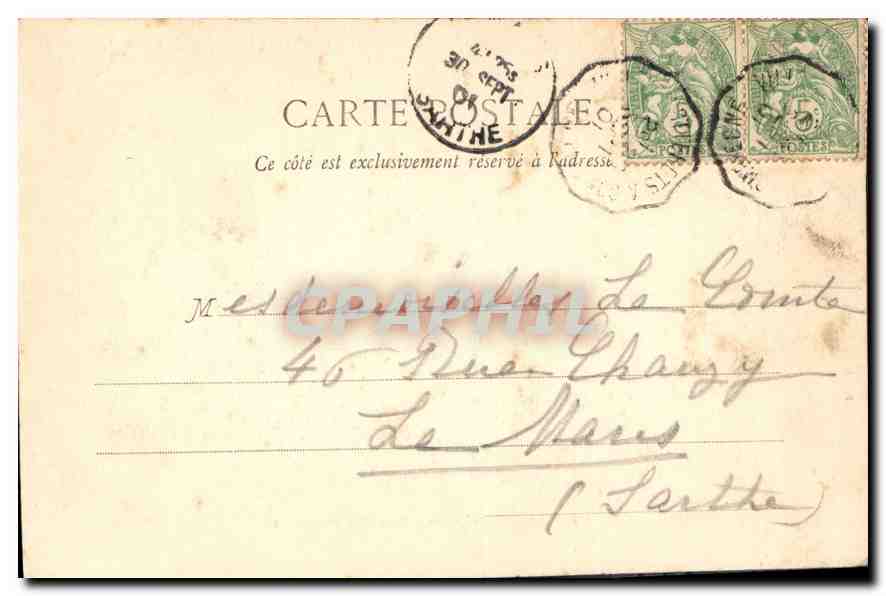 30 SEPT
01
SARTHE
CARTE POSTALE
Ce côté est exclusivement réservé à l'adresse
POSTES
Mesdemoiselles Le Comte
46 Rue Chanzy
Le Mans
(Sarthe)
CPAPHIL